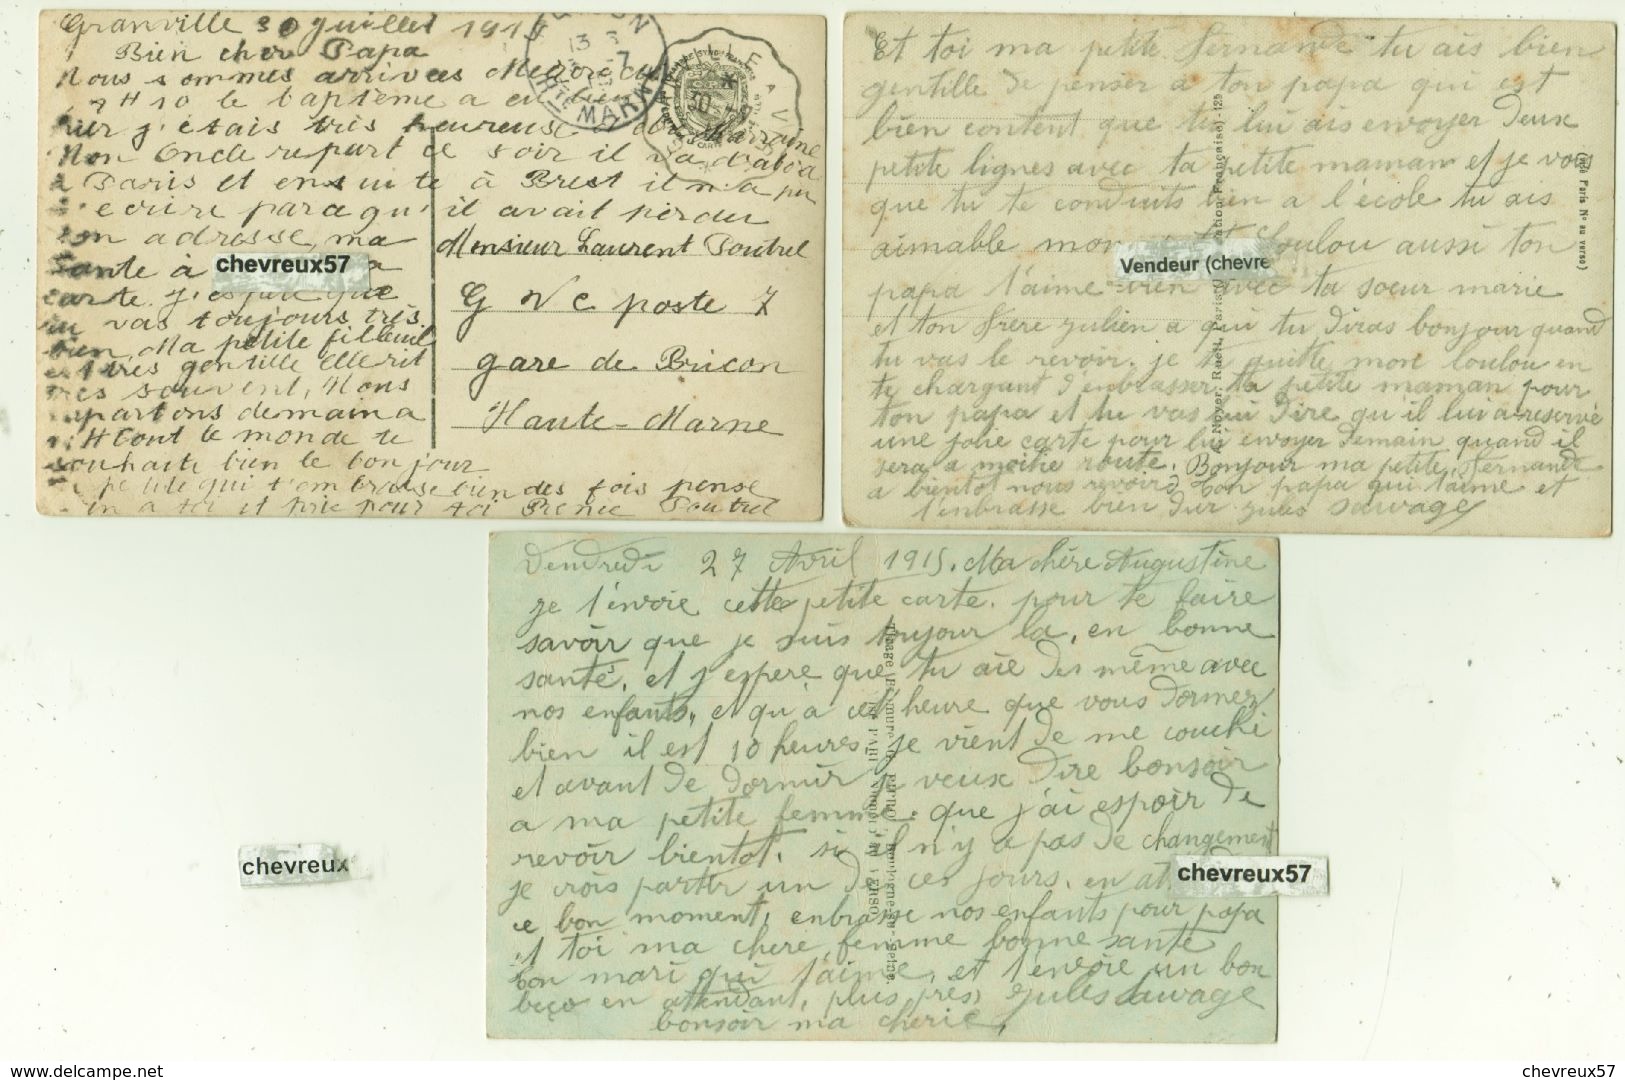 Granville 30 juillet 1915
Bien cher Papa
Nous sommes arrivées Mercredi
7 H 10 le baptême a eu lieu
hier j'étais très heureuse
Marraine
Mon Oncle repart ce soir il va d'abord
à Paris et ensuite à Brest il n'a pu
écrire parce qu'il avait perdu
ton adresse, ma
Tante à
carte. J'espère que
tu vas toujours très
bien. Ma petite filleul
est très gentille elle rit
très souvent, Nous
repartons demain a
H tout le monde te
souhaite bien le bonjour
petite qui t'embrasse bien des fois pense
bien a toi et prie pour toi Poutrel
Monsieur Laurent Poutrel
G V C poste 7
gare de Bricon
Haute-Marne
chevreux57
Et toi ma petite Fernande tu ais bien
gentille de penser a ton papa qui est
bien content que tu lui ais envoyer deux
petite lignes avec ta petite maman et je vois
que tu te conduits bien a l'école tu ais
aimable mon loulou aussi ton
papa t'aime bien avec ta soeur marie
et ton frere julien a qui tu diras bonjour quand
tu vas le revoir. je te quitte mon loulou en
te chargant d'enbrasser ta petite maman pour
ton papa et tu vas lui dire qu'il lui a reservé
une jolie carte pour lui envoyer demain quand il
sera a moitie route. Bonjour ma petite Fernande
a bientot nous revoir ton papa qui t'aime et
t'enbrasse bien dur jules sauvage
Vendeur (chevre
(voir Paris N° au verso)
Vendredi 27 Avril 1915. Ma chère Augustine
je t'envoie cette petite carte. pour te faire
savoir que je suis toujour la, en bonne
santé, et j'espere que tu aie des même avec
nos enfants, et qu'à cet heure que vous dormez
bien il est 10 heures, je vient de me couché
et avant de dormir je veux dire bonsoir
a ma petite femme. que j'ai espoir de
revoir bientot. si il n'y a pas de changement
je crois partir un de ces jours. en at
ce bon moment, enbrasse nos enfants pour papa
et toi ma chere femme bonne santé
ton mari qui t'aime, et t'envoie un bon
beço en attendant, plus près Jules Sauvage
bonsoir ma cherie,
chevreux57
chevreux
www.delcampe.net
chevreux57